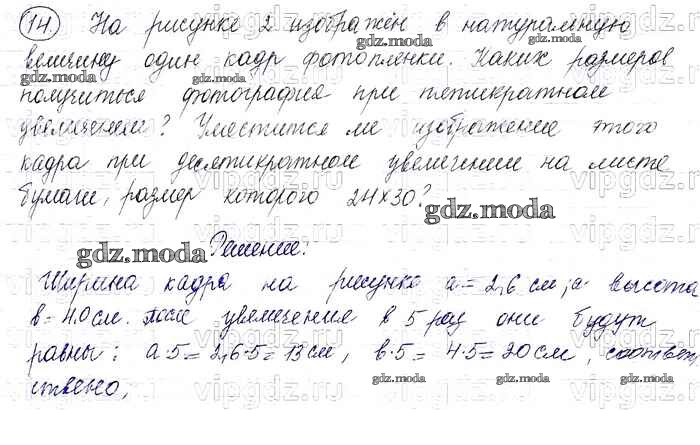 14. На рисунке 2 изображён в натуральную
величину один кадр фотоплёнки. Каких размеров
получиться фотография при пятикратном
увеличении? Уместится ли изображение этого
кадра при десятикратном увеличении на листе
бумаги, размер которого 24×30?
Решение:
Ширина кадра на рисунке a = 2,6 см; а высота
в = 4.0 см. После увеличения в 5 раз они будут
равны: a·5 = 2,6·5 = 13 см, в·5 = 4·5 = 20 см, соответ,
ствено,
gdz.moda
gdz.moda
gdz.moda
gdz.moda
gdz.moda
gdz.moda
gdz.moda
gdz.moda
gdz.moda